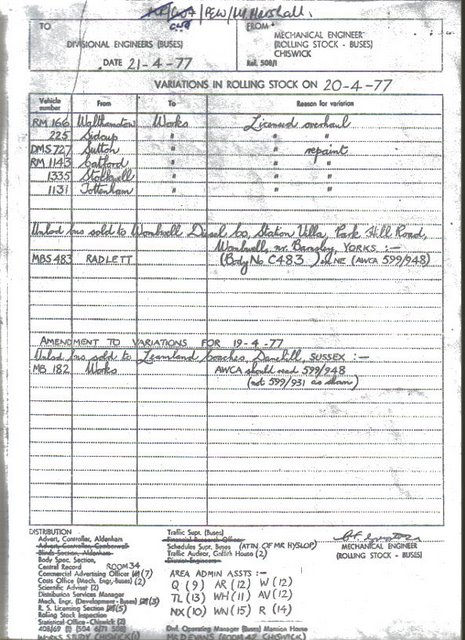 TO
FROM
DIVISIONAL ENGINEERS (BUSES)
MECHANICAL ENGINEER
(ROLLING STOCK - BUSES)
CHISWICK
DATE 21-4-77
Ref. 508/1
VARIATIONS IN ROLLING STOCK ON 20-4-77
Vehicle number From To Reason for variation
RM 166 Walthamstow Works Licensed overhaul
225 Sidcup " "
DMS 727 Sutton " " repaint
RM 1143 Catford " "
1335 Stockwell " "
1131 Tottenham " "
Unlcd bus sold to Wombwell Diesel Co, Station Villa, Park Hill Road,
Wombwell, nr. Barnsley, YORKS. :-
MBS 483 RADLETT (Body No C483) NE (AWCA 599/948)
AMENDMENT TO VARIATIONS FOR 19-4-77
Unlcd bus sold to Leamland Coaches, Danehill, SUSSEX :-
MB 182 Works AWCA should read 599/948
(not 599/931 as shown)
DISTRIBUTION
Advert. Controller, Aldenham
Advert. Controller, Camberwell
Blinds Section, Aldenham
Body Spec. Section,
Central Record ROOM 34
Commercial Advertising Officer (7)
Costs Office (Mech. Engr. Buses) (2)
Scientific Adviser (2)
Distribution Services Manager
Mech. Engr. (Development - Buses) (3)
R. S. Licensing Section (5)
Rolling Stock Inspection
Statistical Office - Chiswick (2)
408/69 (1) (504 6/71 508)
WORKS STUDY CHISWICK (1)
Traffic Supt. (Buses)
Financial Research Officer
Schedules Supt. Buses (ATTN OF MR HYSLOP)
Traffic Auditor, Griffith House (2)
Divnl. Engineers
AREA ADMIN ASSTS :-
Q (9) AR (12) W (12)
TL (13) WH (11) AV (12)
NX (10) WN (15) R (14)
Divl. Operating Manager (Buses) Mansion House
MR D EVANS (ROOM 47, CHISWICK)
MECHANICAL ENGINEER
(ROLLING STOCK - BUSES)